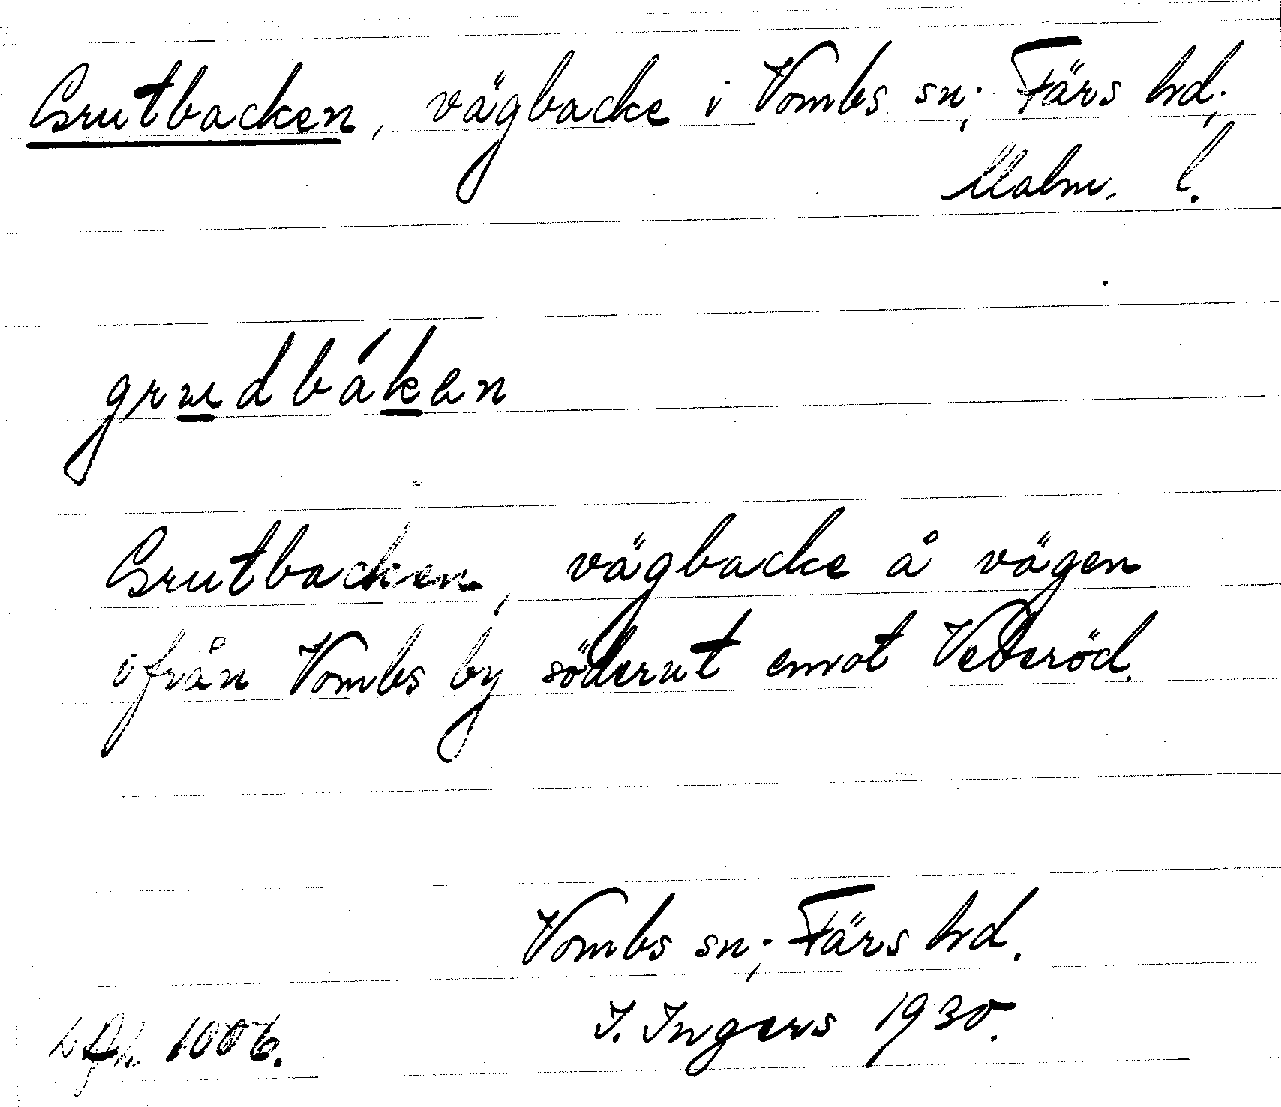 Grutbacken, vägbacke i Vombs sn; Färs hd;
Malm. l.
grudbákan
Grutbacken, vägbacke å vägen
ifrån Vombs by söderut emot Veberöd.
Vombs sn; Färs hd.
I. Ingers 1930.
1006.